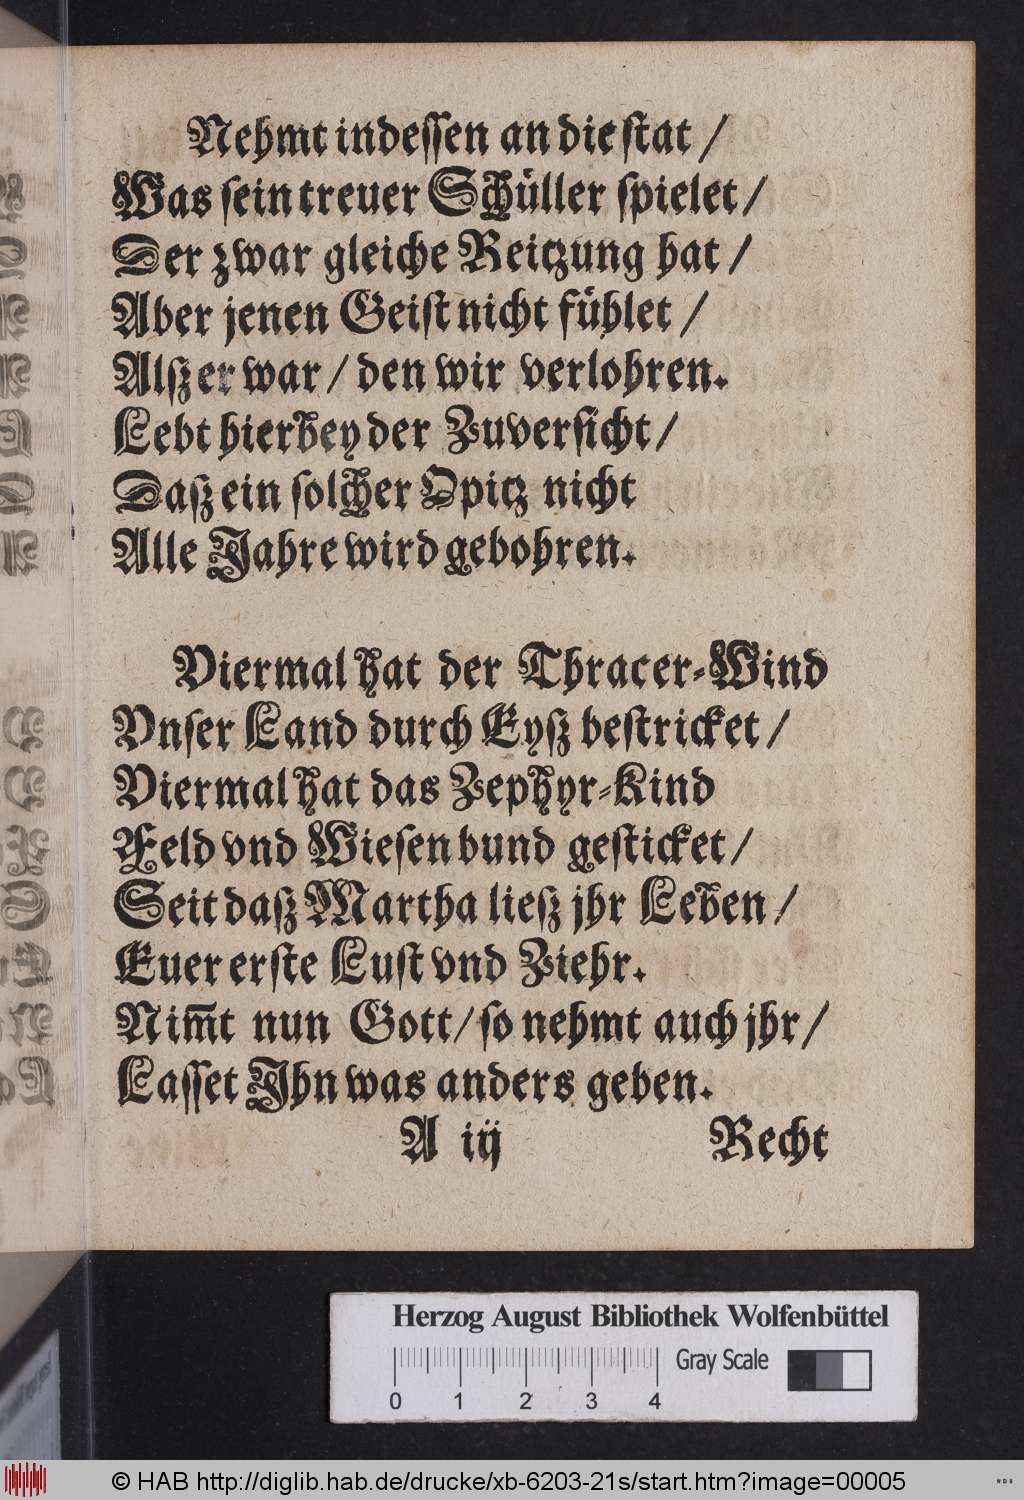 Nehmt indessen an die stat /
Was sein treuer Schüller spielet /
Der zwar gleiche Reitzung hat /
Aber jenen Geist nicht fühlet /
Alß er war / den wir verlohren.
Lebt hierbey der Zuversicht /
Daß ein solcher Opitz nicht
Alle Jahre wird gebohren.
Viermal hat der Thracer-Wind
Vnser Land durch Eyß bestricket /
Viermal hat das Zephyr-Kind
Feld vnd Wiesen bund gesticket /
Seit daß Martha ließ jhr Leben /
Euer erste Lust vnd Ziehr.
Nim̅t nun Gott / so nehmt auch jhr /
Lasset Ihn was anders geben.
A iij Recht
Herzog August Bibliothek Wolfenbüttel
Gray Scale
0 1 2 3 4
© HAB http://diglib.hab.de/drucke/xb-6203-21s/start.htm?image=00005